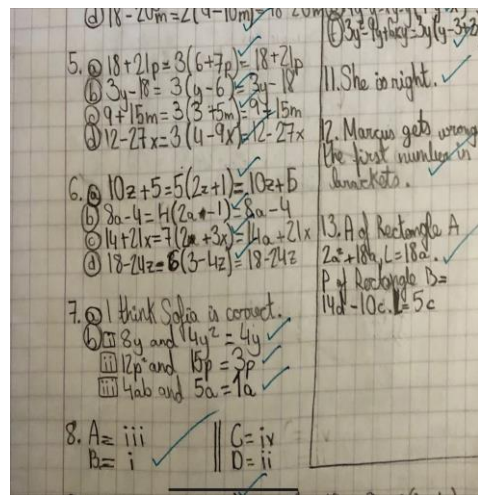 (d) 18-20m=2(9-10m)=18-20m
5. (a) 18+21p=3(6+7p)=18+21p
(b) 3y-18=3(y-6)=3y-18
(c) 9+15m=3(3+5m)=9+15m
(d) 12-27x=3(4-9x)=12-27x
6. (a) 10z+5=5(2z+1)=10z+5
(b) 8a-4=4(2a-1)=8a-4
(c) 14+21x=7(2+3x)=14a+21x
(d) 18-24z=6(3-4z)=18-24z
7. (a) I think Sofia is correct.
(b) i 8y and 4y²=4y
ii 12p² and 15p=3p
iii 4ab and 5a=1a
8. A= iii
B= i
C= iv
D= ii
(f) 3y²-9y+6xy=3y(y-3+2x)
11. She is right.
12. Marcus gets wrong
the first number in
brackets.
13. A of Rectangle A
2a²+18a, L=18a².
P of Rectangle B=
14d-10c. L=5c